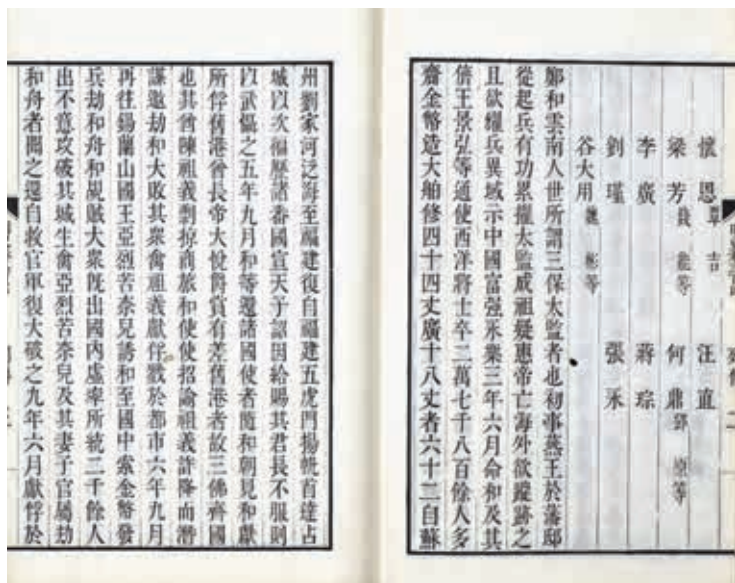 懷恩 覃吉 汪直
梁芳 錢能等 何鼎 鄧原等
李廣 蔣琮
劉瑾 張永
谷大用 魏彬等
鄭和雲南人世所謂三保太監者也初事燕王於藩邸
從起兵有功累擢太監成祖疑惠帝亡海外欲蹤跡之
且欲耀兵異域示中國富强永樂三年六月命和及其
儕王景弘等通使西洋將士卒二萬七千八百餘人多
齎金幣造大舶修四十四丈廣十八丈者六十二自蘇
州劉家河泛海至福建復自福建五虎門揚帆首達占
城以次徧歷諸番國宣天子詔因給賜其君長不服則
以武懾之五年九月和等還諸國使者隨和朝見和獻
所俘舊港酋長帝大悅爵賞有差舊港者故三佛齊國
也其酋陳祖義剽掠商旅和使使招諭祖義詐降而潛
謀邀劫和大敗其衆禽祖義獻俘戮於都市六年九月
再往錫蘭山國王亞烈苦奈兒誘和至國中索金幣發
兵劫和舟和覘賊大衆旣出國內虛率所統二千餘人
出不意攻破其城生禽亞烈苦奈兒及其妻子官屬劫
和舟者聞之還自救官軍復大破之九年六月獻俘於